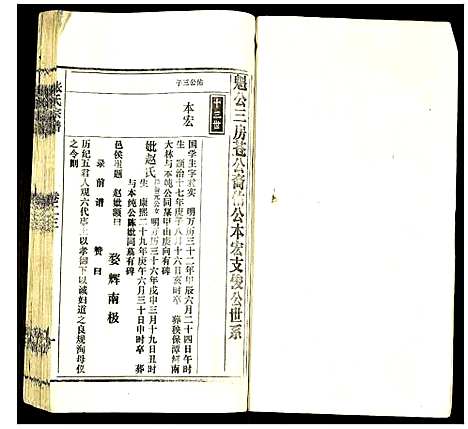 魁公三房苍公裔佑公本宏支发公世系
佑公三子
十三世
本宏
国学生字君实 明万历三十二年甲辰六月二十四日午时
生 顺治十七年庚子八月十六日亥时卒 葬秧保潭岭南
大林与本纯公同墓甲山庚向有碑
妣赵氏 明万历三十六年戊申三月十九日丑时
生 康熙二十九年庚午六月三十日申时卒 葬
与本纯公陈妣同墓有碑
邑侯 赵妣额曰 婺辉南极
录前谱 赞曰
历纪五君人观六代序上以孝御下以诚妇道之良规洵母仪
之令则
张氏宗谱
卷二三